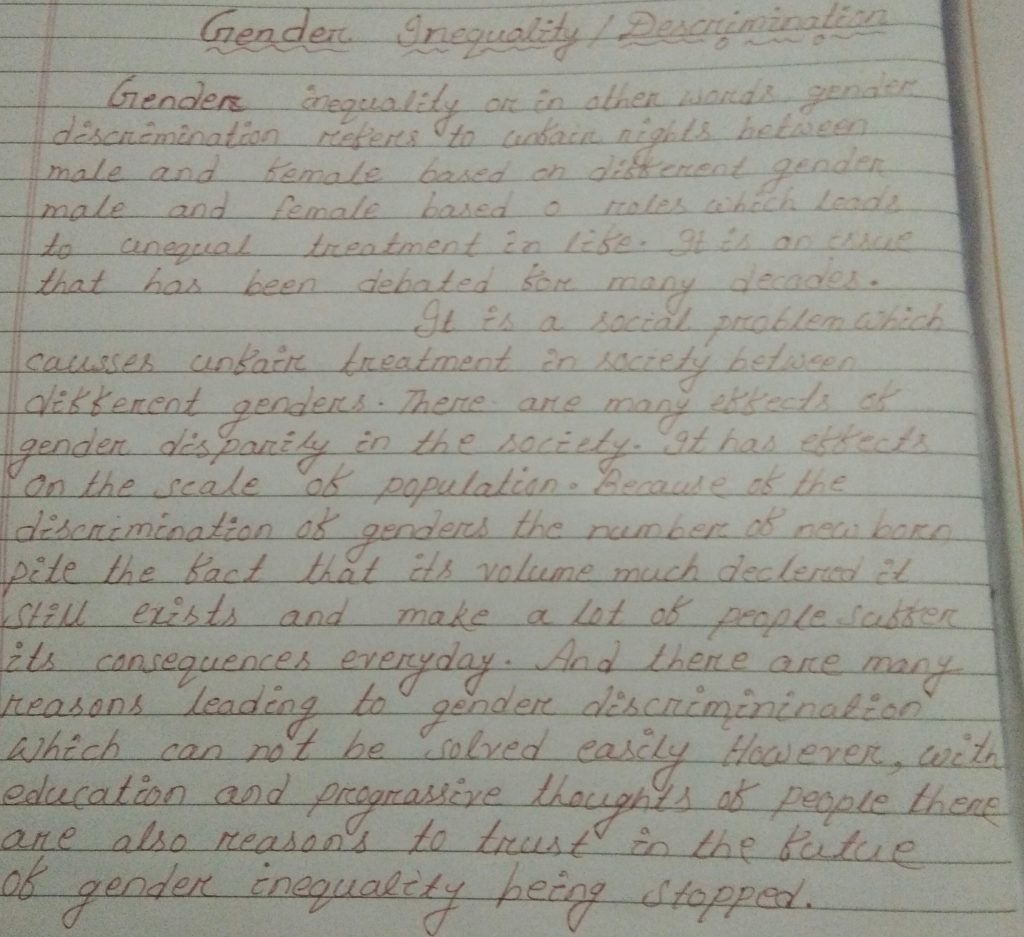 Gender Inequality / Descrimination
Gender inequality or in other words gender
discrimination refers to unfair rights between
male and female based on different gender
male and female based o roles which leads
to unequal treatment in life. It is an issue
that has been debated for many decades.
It is a social problem which
causses unfair treatment in society between
different genders. There are many effects of
gender disparily in the society. It has effects
on the scale of population. Because of the
discrimination of genders the number of new born
pite the fact that its volume much declered it
still exists and make a lot of people suffer
its consequences everyday. And there are many
reasons leading to gender discriminination
which can not be solved easily However, with
education and prograssive thoughts of people there
are also reasons to trust in the futue
of gender inequality being stopped.